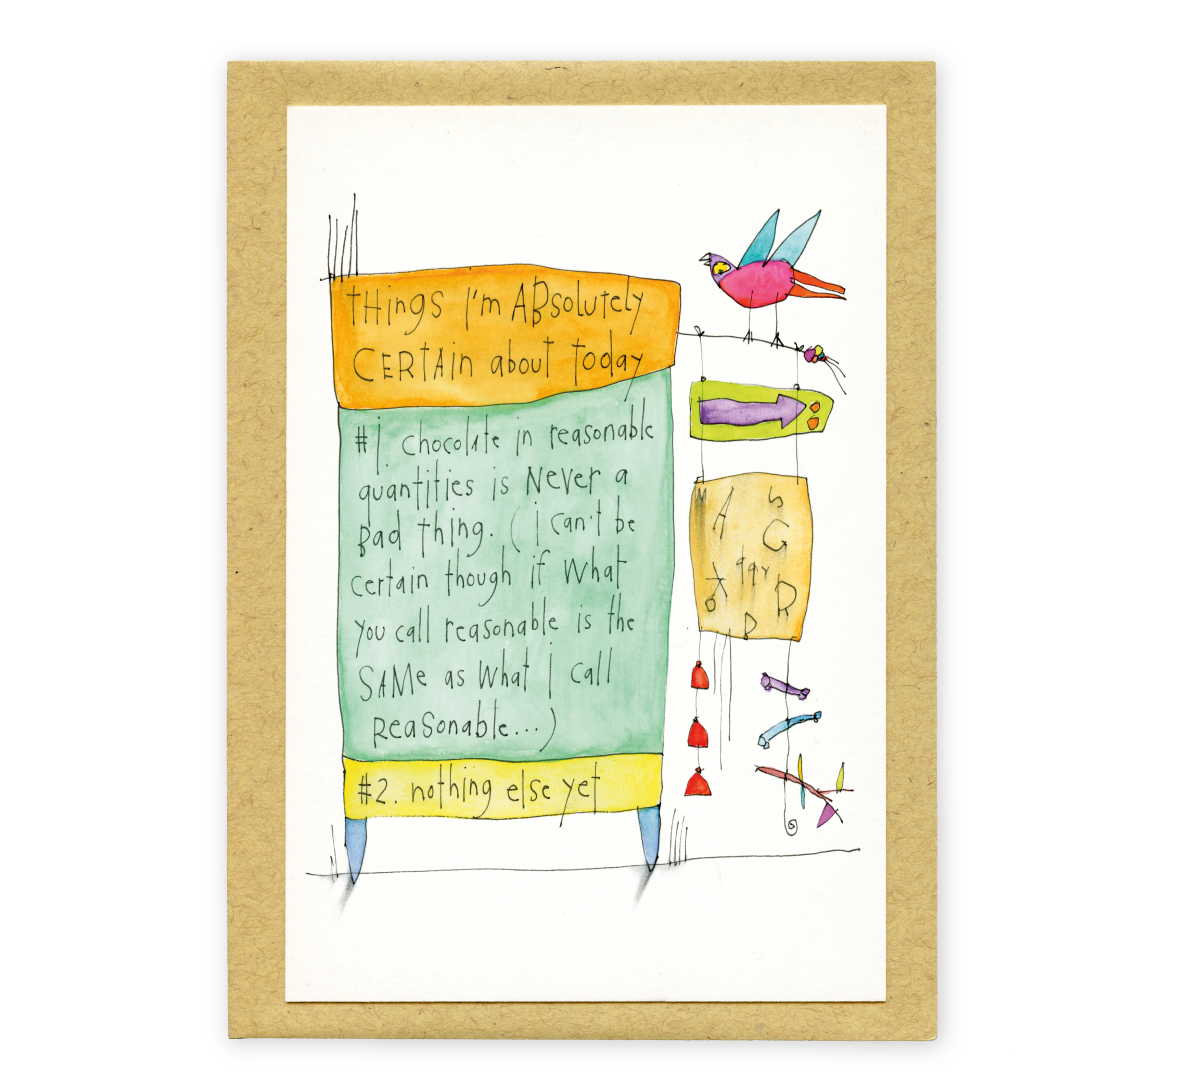 tHings I'm ABsolutely
CERtAin about today
#1. chocolate in reasonable
quantities is Never a
Bad thing. (i can't be
certain though if what
you call reasonable is the
SAMe as what I call
ReaSonable...)
#2. nothing else yet
M A S
G
R
B